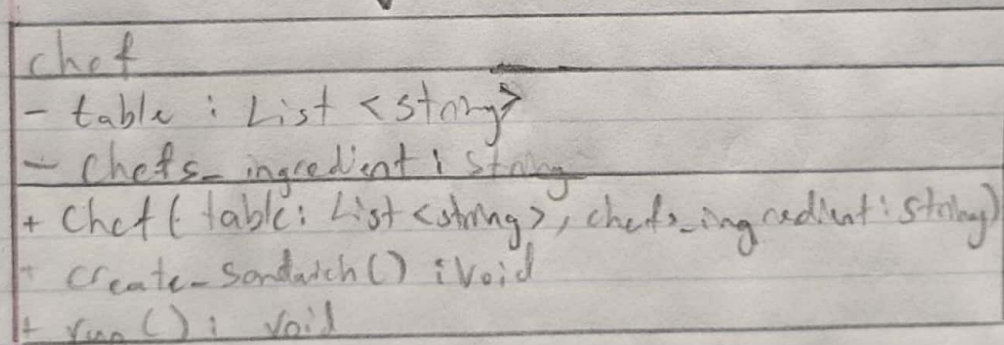 chef
- table : List <string>
- Chefs_ingredient : string
+ Chef( table: List <string>, chefs_ingredient : string)
+ create_sandwich() : void
+ run() : void